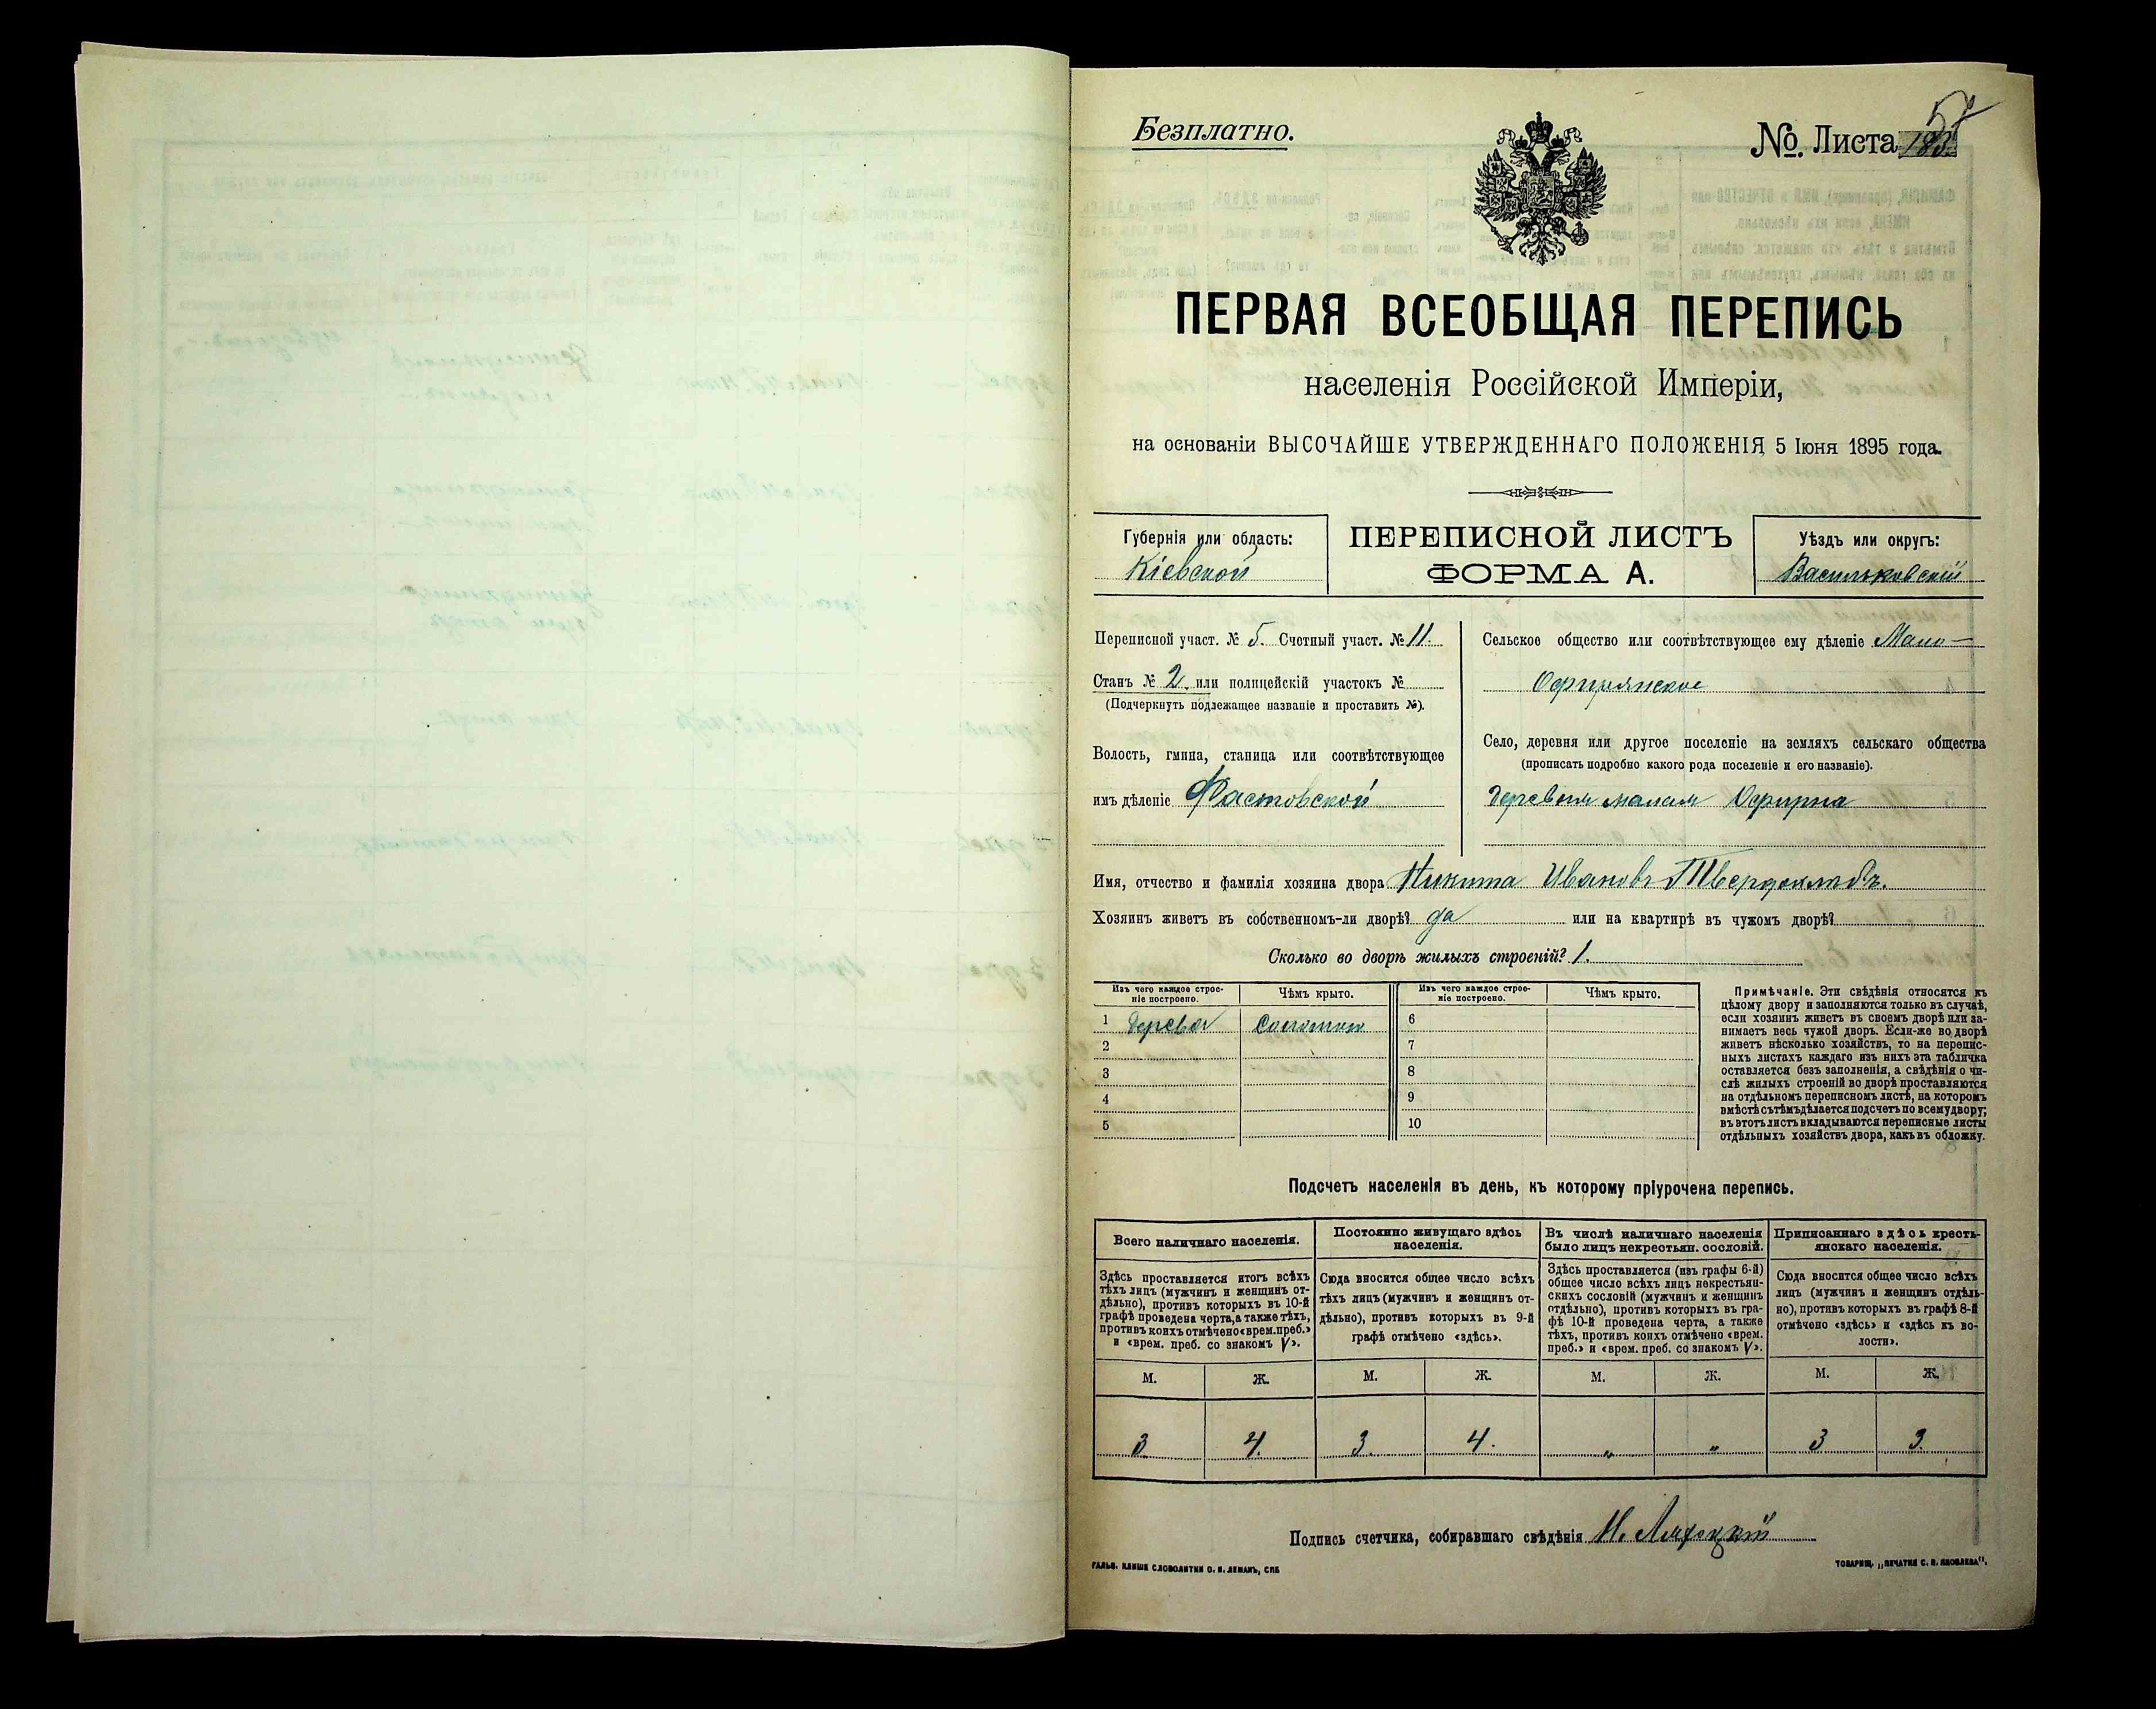 Безплатно.
№ Листа 57
ПЕРВАЯ ВСЕОБЩАЯ ПЕРЕПИСЬ
населенія Россійской Имперіи,
на основаніи ВЫСОЧАЙШЕ УТВЕРЖДЕННАГО ПОЛОЖЕНІЯ 5 Іюня 1895 года.
Губернія или область:
Кіевской
ПЕРЕПИСНОЙ ЛИСТЪ
ФОРМА А.
Уѣздъ или округъ:
Васильковскій
Переписной участ. № 5. Счетный участ. № 11.
Станъ № 2. или полицейскій участокъ №
(Подчеркнуть подлежащее названіе и проставить №).
Волость, гмина, станица или соотвѣтствующее
имъ дѣленіе Фастовской
Сельское общество или соотвѣтствующее ему дѣленіе Мало-
Офирянское
Село, деревня или другое поселеніе на земляхъ сельскаго общества
(прописать подробно какого рода поселеніе и его названіе).
деревня малая Офирна
Имя, отчество и фамилія хозяина двора Никита Ивановъ Твердохлѣбъ.
Хозяинъ живетъ въ собственномъ-ли дворѣ? да или на квартирѣ въ чужомъ дворѣ?
Сколько во дворѣ жилыхъ строеній? 1.
Изъ чего каждое строе-
ніе построено.
Чѣмъ крыто.
Изъ чего каждое строе-
ніе построено.
Чѣмъ крыто.
1 дерева соломою 6
2 7
3 8
4 9
5 10
Примѣчаніе. Эти свѣдѣнія относятся къ
цѣлому двору и заполняются только въ случаѣ,
если хозяинъ живетъ въ своемъ дворѣ или за-
нимаетъ весь чужой дворъ. Если-же во дворѣ
живетъ нѣсколько хозяйствъ, то на перепис-
ныхъ листахъ каждаго изъ нихъ эта табличка
оставляется безъ заполненія, а свѣдѣнія о чи-
слѣ жилыхъ строеній во дворѣ проставляются
на отдѣльномъ переписномъ листѣ, на которомъ
вмѣстѣ съ тѣмъ дѣлается подсчетъ по всему двору;
въ этотъ листъ вкладываются переписные листы
отдѣльныхъ хозяйствъ двора, какъ въ обложку.
Подсчетъ населенія въ день, къ которому пріурочена перепись.
Всего наличнаго населенія.
Здѣсь проставляется итогъ всѣхъ
тѣхъ лицъ (мужчинъ и женщинъ от-
дѣльно), противъ которыхъ въ 10-й
графѣ проведена черта, а также тѣхъ,
противъ коихъ отмѣчено «врем. преб.»
и «врем. преб. со знакомъ V».
Постоянно живущаго здѣсь
населенія.
Сюда вносится общее число всѣхъ
тѣхъ лицъ (мужчинъ и женщинъ от-
дѣльно), противъ которыхъ въ 9-й
графѣ отмѣчено «здѣсь».
Въ числѣ наличнаго населенія
было лицъ некрестьян. сословій.
Здѣсь проставляется (изъ графы 6-й)
общее число всѣхъ лицъ некрестьян-
скихъ сословій (мужчинъ и женщинъ
отдѣльно), противъ которыхъ въ гра-
фѣ 10-й проведена черта, а также
тѣхъ, противъ коихъ отмѣчено «врем.
преб.» и «врем. преб. со знакомъ V».
Приписаннаго здѣсь кресть-
янскаго населенія.
Сюда вносится общее число всѣхъ
лицъ (мужчинъ и женщинъ отдѣль-
но), противъ которыхъ въ графѣ 8-й
отмѣчено «здѣсь» и «здѣсь къ во-
лости».
М. Ж. М. Ж. М. Ж. М. Ж.
3 4. 3. 4. " " 3 3.
Подпись счетчика, собиравшаго свѣдѣнія Н.
ГАЛЬВ. КЛИШЕ СЛОВОЛИТНИ О. И. ЛЕМАНЪ, СПБ
ТОВАРИЩ. „ПЕЧАТНЯ С. П. ЯКОВЛЕВА".